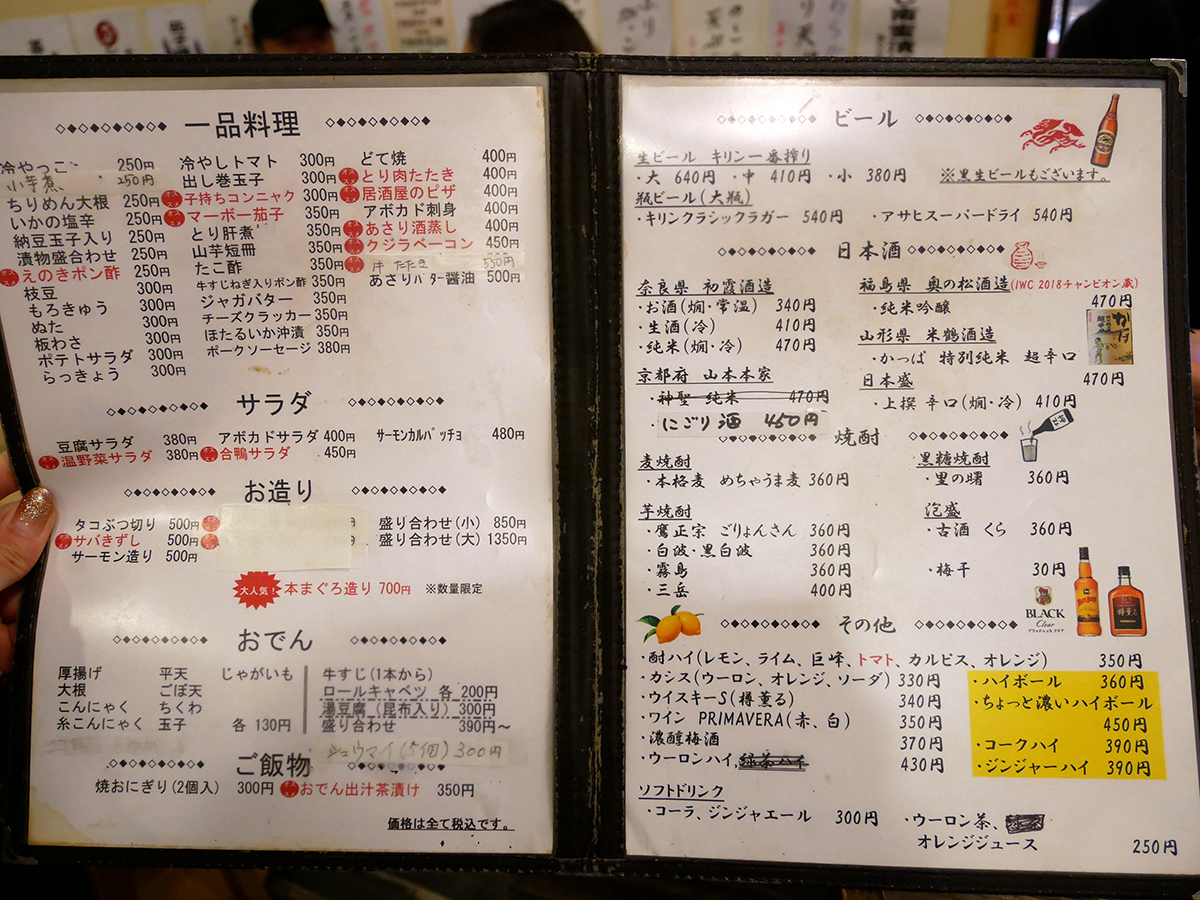 一品料理
冷やっこ 250円
小芋煮 250円
ちりめん大根 250円
いかの塩辛 250円
納豆玉子入り 250円
漬物盛合わせ 250円
えのきポン酢 250円
枝豆 300円
もろきゅう 300円
ぬた 300円
板わさ 300円
ポテトサラダ 300円
らっきょう 300円
冷やしトマト 300円
出し巻玉子 300円
子持ちコンニャク 300円
マーボー茄子 350円
とり肝煮 350円
山芋短冊 350円
たこ酢 350円
牛すじねぎ入りポン酢 350円
ジャガバター 350円
チーズクラッカー 350円
ほたるいか沖漬 350円
ポークソーセージ 380円
どて焼 400円
とり肉たたき 400円
居酒屋のピザ 400円
アボカド刺身 400円
あさり酒蒸し 400円
クジラベーコン 450円
牛たたき 550円
あさりバター醤油 500円
サラダ
豆腐サラダ 380円 アボカドサラダ 400円 サーモンカルパッチョ 480円
温野菜サラダ 380円 合鴨サラダ 450円
お造り
タコぶつ切り 500円 盛り合わせ(小) 850円
サバきずし 500円 盛り合わせ(大) 1350円
サーモン造り 500円
大人気! 本まぐろ造り 700円 ※数量限定
おでん
厚揚げ 平天 じゃがいも
大根 ごぼ天
こんにゃく ちくわ
糸こんにゃく 玉子 各 130円
牛すじ(1本から)
ロールキャベツ 各 200円
湯豆腐(昆布入り) 300円
盛り合わせ 390円～
シュウマイ(5個) 300円
ご飯物
焼おにぎり(2個入) 300円 おでん出汁茶漬け 350円
価格は全て税込です。
ビール
生ビール キリン一番搾り
・大 640円 ・中 410円 ・小 380円 ※黒生ビールもございます。
瓶ビール(大瓶)
・キリンクラシックラガー 540円 ・アサヒスーパードライ 540円
日本酒
奈良県 初霞酒造
・お酒(燗・常温) 340円
・生酒(冷) 410円
・純米(燗・冷) 470円
京都府 山本本家
・神聖 純米 470円
・にごり酒 450円
福島県 奥の松酒造(IWC 2018チャンピオン蔵)
・純米吟醸 470円
山形県 米鶴酒造
・かっぱ 特別純米 超辛口 470円
日本盛
・上撰 辛口(燗・冷) 410円
焼酎
麦焼酎
・本格麦 めちゃうま麦 360円
芋焼酎
・鷹正宗 ごりょんさん 360円
・白波・黒白波 360円
・霧島 360円
・三岳 400円
黒糖焼酎
・里の曙 360円
泡盛
・古酒 くら 360円
・梅干 30円
BLACK
Clear
ブラックニッカ クリア
その他
・酎ハイ(レモン、ライム、巨峰、トマト、カルピス、オレンジ) 350円
・カシス(ウーロン、オレンジ、ソーダ) 330円
・ウイスキーS(樽薫る) 340円
・ワイン PRIMAVERA(赤、白) 350円
・濃醇梅酒 370円
・ウーロンハイ、緑茶ハイ 430円
・ハイボール 360円
・ちょっと濃いハイボール 450円
・コークハイ 390円
・ジンジャーハイ 390円
ソフトドリンク
・コーラ、ジンジャエール 300円
・ウーロン茶、
オレンジジュース 250円